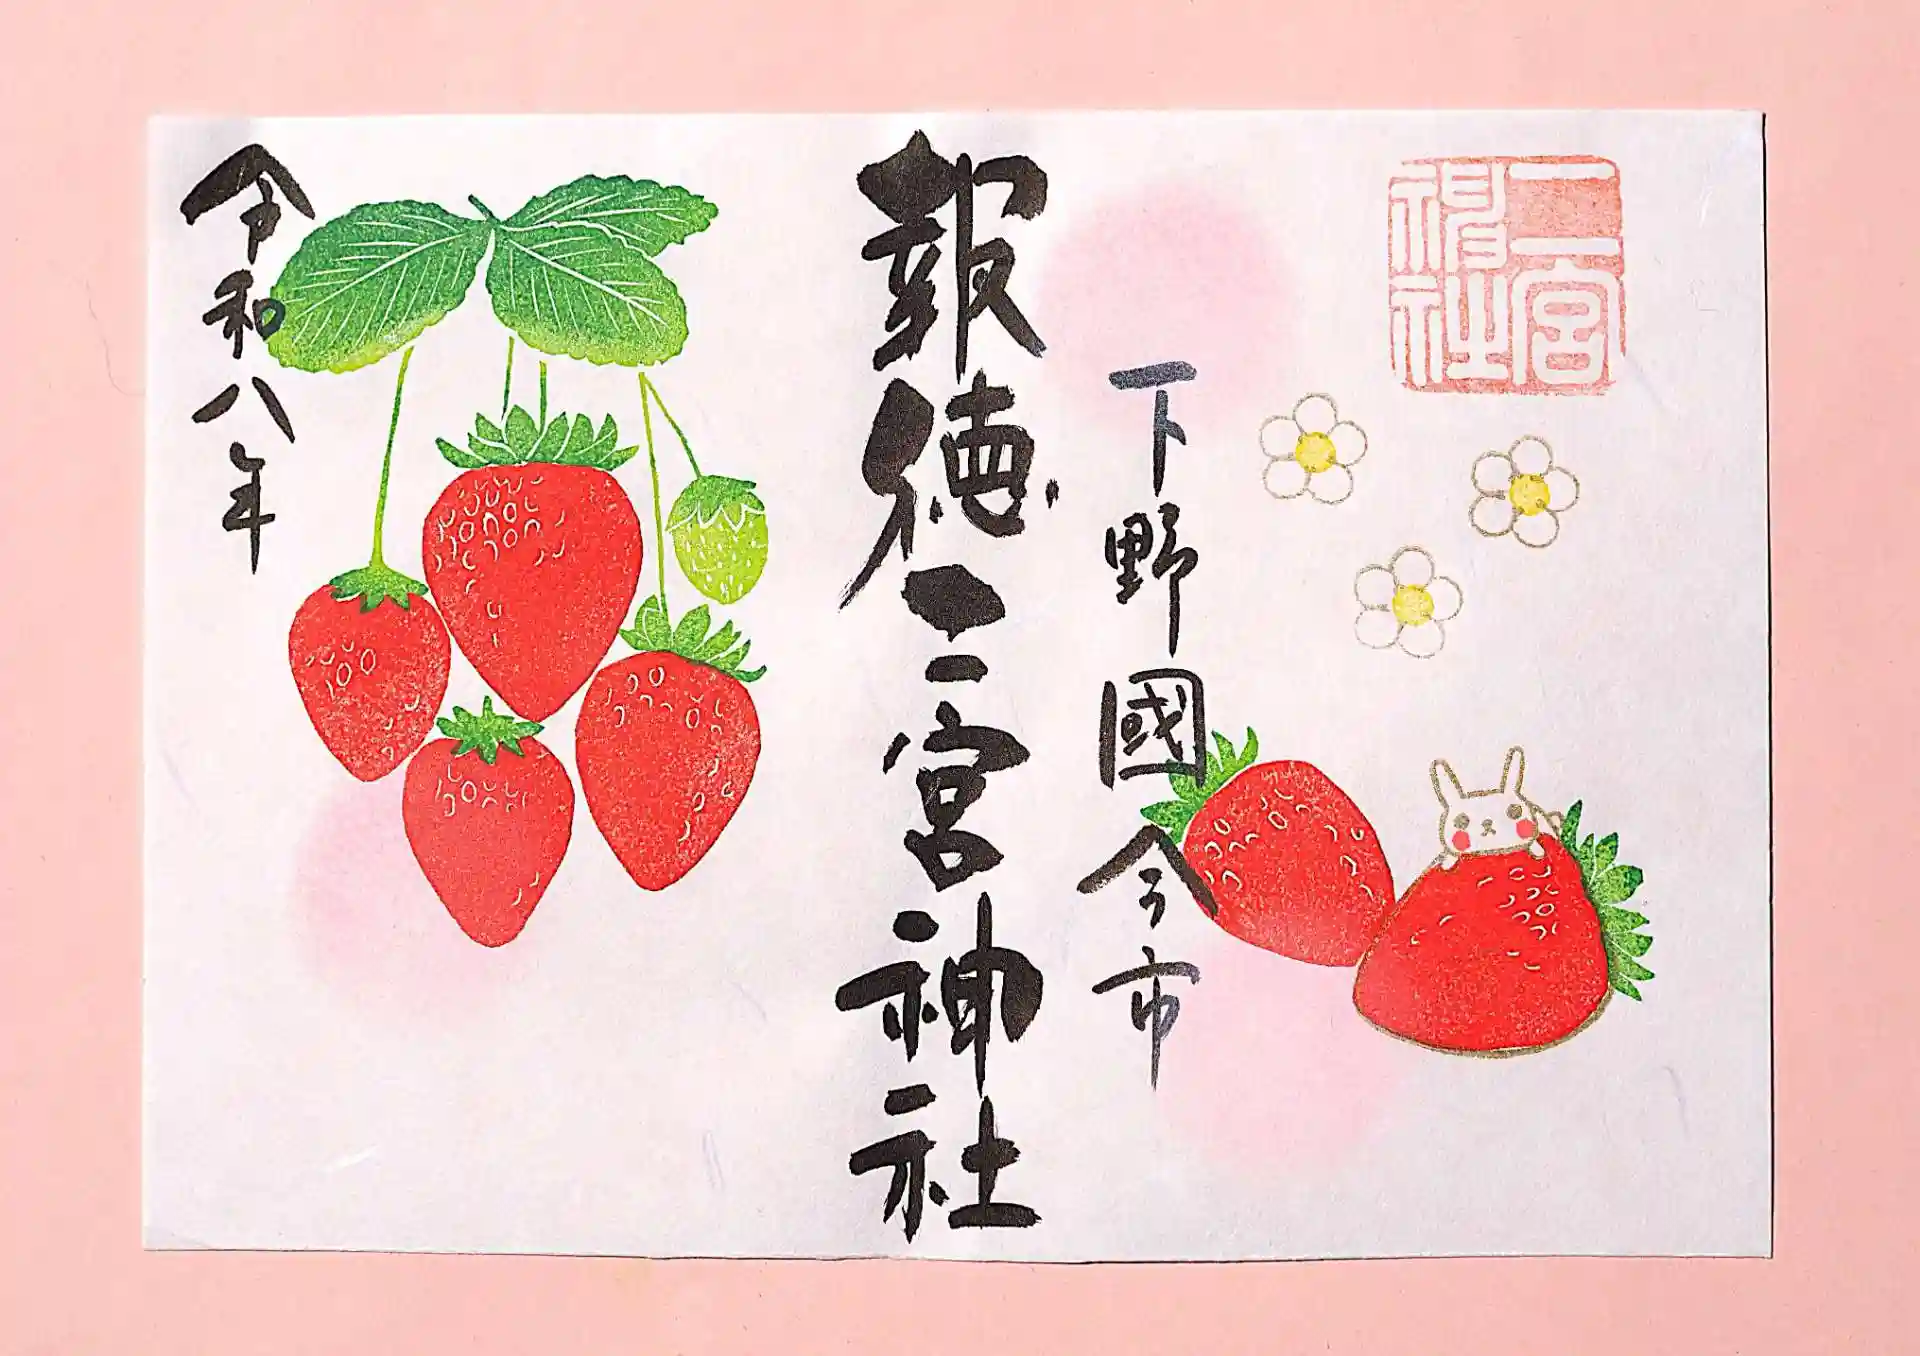 二宮神社
下野國今市
報徳二宮神社
令和八年